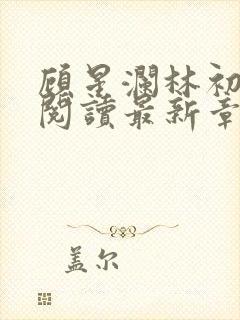 顾星瀾林初
閱讀最新章
盖尔